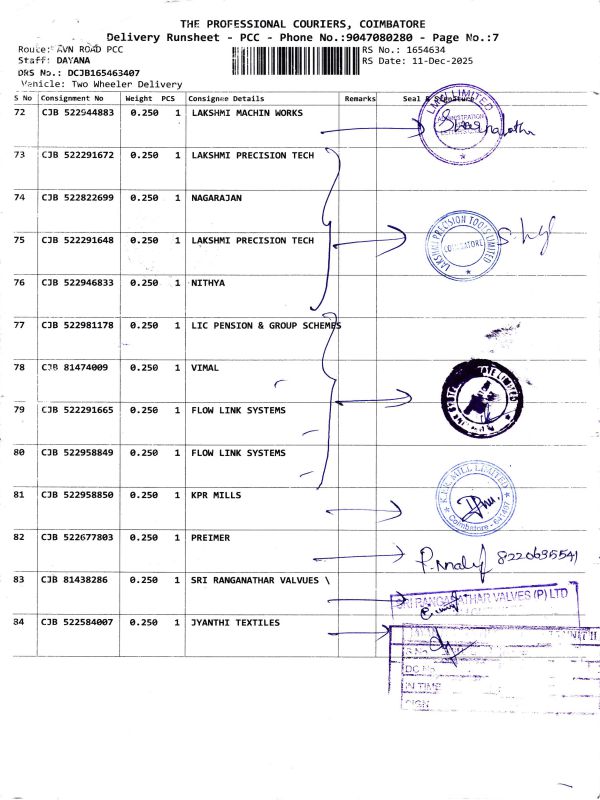 THE PROFESSIONAL COURIERS, COIMBATORE
Delivery Runsheet - PCC - Phone No.:9047080280 - Page No.:7
Route: AVN ROAD PCC
RS No.: 1654634
Staff: DAYANA
RS Date: 11-Dec-2025
DRS No.: DCJB165463407
Vehicle: Two Wheeler Delivery
S No Consignment No Weight PCS Consignee Details Remarks Seal & Signature
72 CJB 522944883 0.250 1 LAKSHMI MACHIN WORKS
LIMITED
73 CJB 522291672 0.250 1 LAKSHMI PRECISION TECH
74 CJB 522822699 0.250 1 NAGARAJAN
LAKSHMI PRECISION TOOLS LIMITED
COIMBATORE
75 CJB 522291648 0.250 1 LAKSHMI PRECISION TECH
76 CJB 522946833 0.250 1 NITHYA
77 CJB 522981178 0.250 1 LIC PENSION & GROUP SCHEMES
78 CJB 81474009 0.250 1 VIMAL
79 CJB 522291665 0.250 1 FLOW LINK SYSTEMS
80 CJB 522958849 0.250 1 FLOW LINK SYSTEMS
81 CJB 522958850 0.250 1 KPR MILLS
K.P.R. MILL LIMITED
Coimbatore - 641407
82 CJB 522677803 0.250 1 PREIMER
8220695541
83 CJB 81438286 0.250 1 SRI RANGANATHAR VALVUES \
SRI RANGANATHAR VALVES (P) LTD
84 CJB 522584007 0.250 1 JYANTHI TEXTILES
IN TIME
SIGN